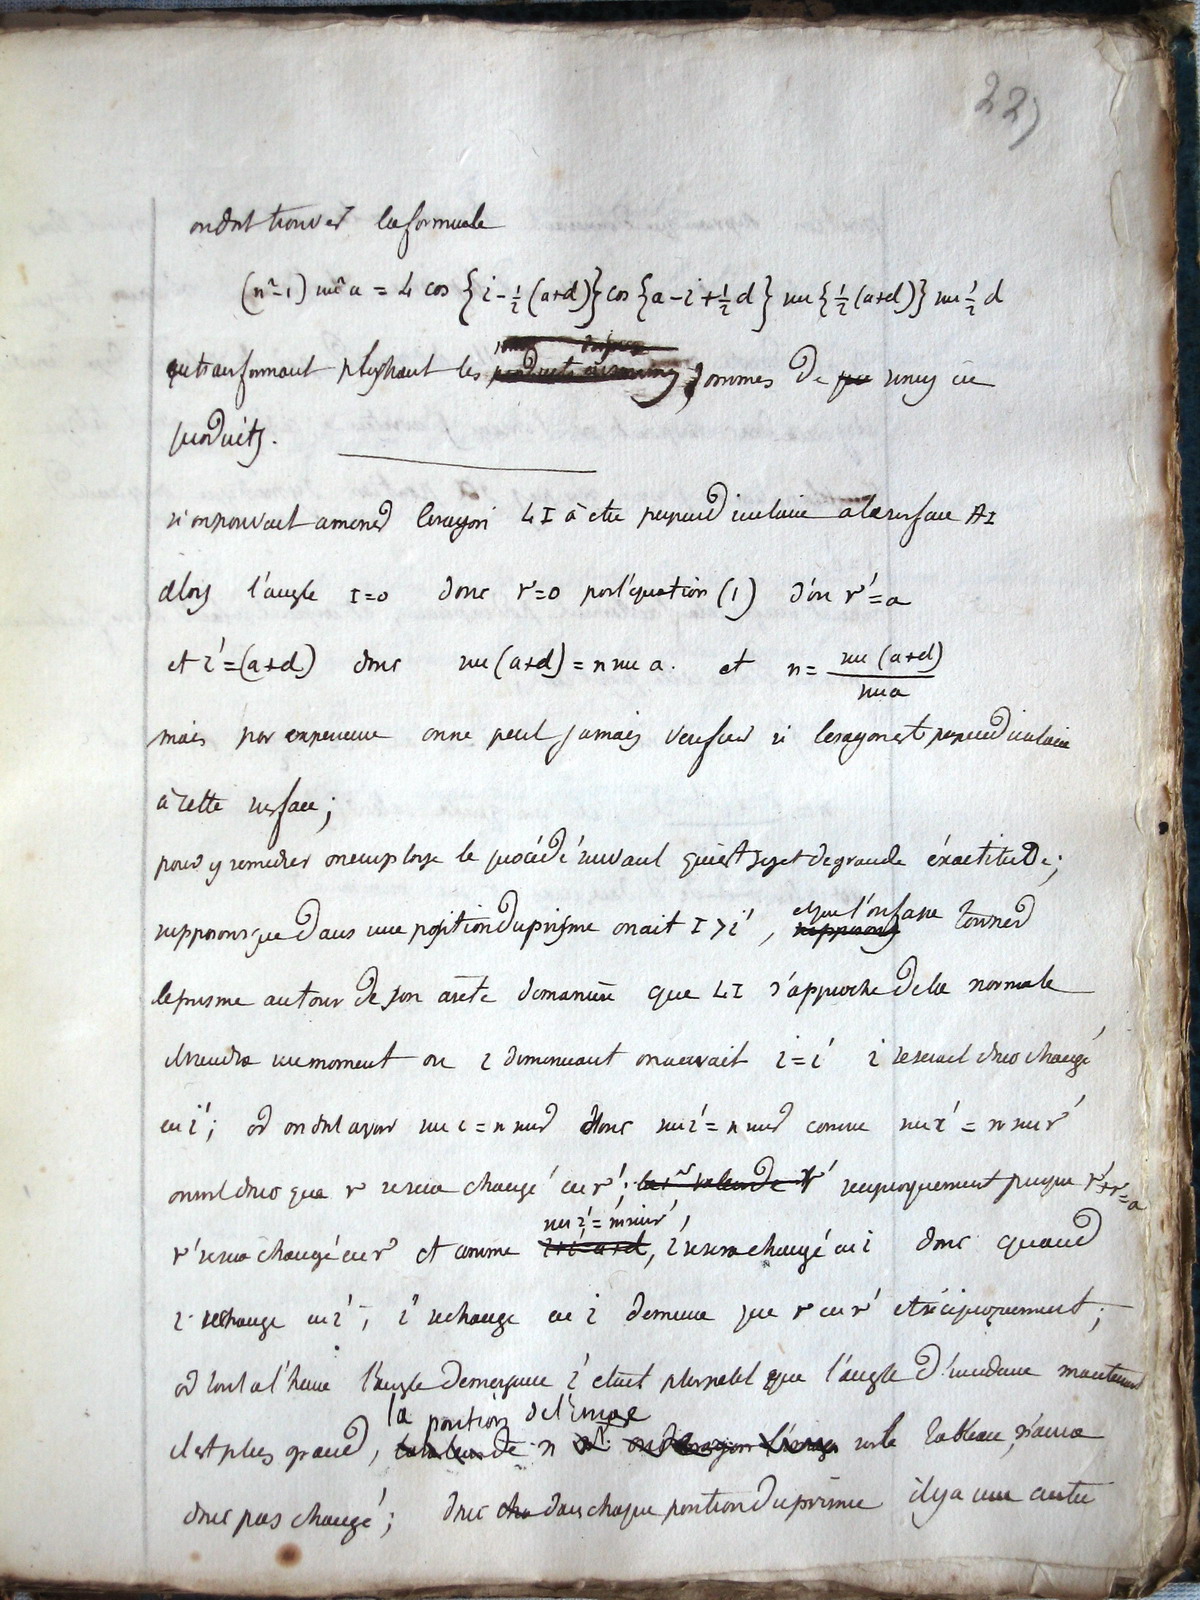 229
on doit trouver la formule
(n²-1) sin²a = 4 cos {i-½(a+d)} cos {a-i+½d} sin {½(a+d)} sin ½ d
en transformant plus haut les sommes de sinus en
produits.
si on pouvait amener le rayon LI à être perpendiculaire a la surface AI
alors l'angle I=0 donc r=0 par l'équation (1) d'ou r'=a
et i'=(a+d) donc sin (a+d) = n sin a. et n= sin (a+d) / sin a
mais par experience on ne peut jamais verifier si le rayon est perpendiculaire
à cette surface;
pour y remedier on employe le procédé suivant qui est sujet de grande éxactitude;
supposons que dans une position du prisme on ait I>i', et que l'on fasse tourner
le prisme autour de son arête de maniere que LI s'approche de la normale
il viendra un moment ou i diminuant on aurait i=i' i se serait donc changé
en i'; or on doit avoir sin i = n sin r donc sin i' = n sin r comme sin i' = n sin r'
on voit donc que r se sera changé en r'; reciproquement puisque r+r'=a
r' se sera changé en r et comme sin i' = n sin r', i' se sera changé en i donc quand
i se change en i', i' se change en i de meme que r en r' et réciproquement;
or tout a l'heure l'angle d'emergence i' etait plus petit que l'angle d'incidence maintenant
il est plus grand, la position de l'image sur le tableau, n'aura
donc pas changé; donc dans chaque position du prisme il y a une autre